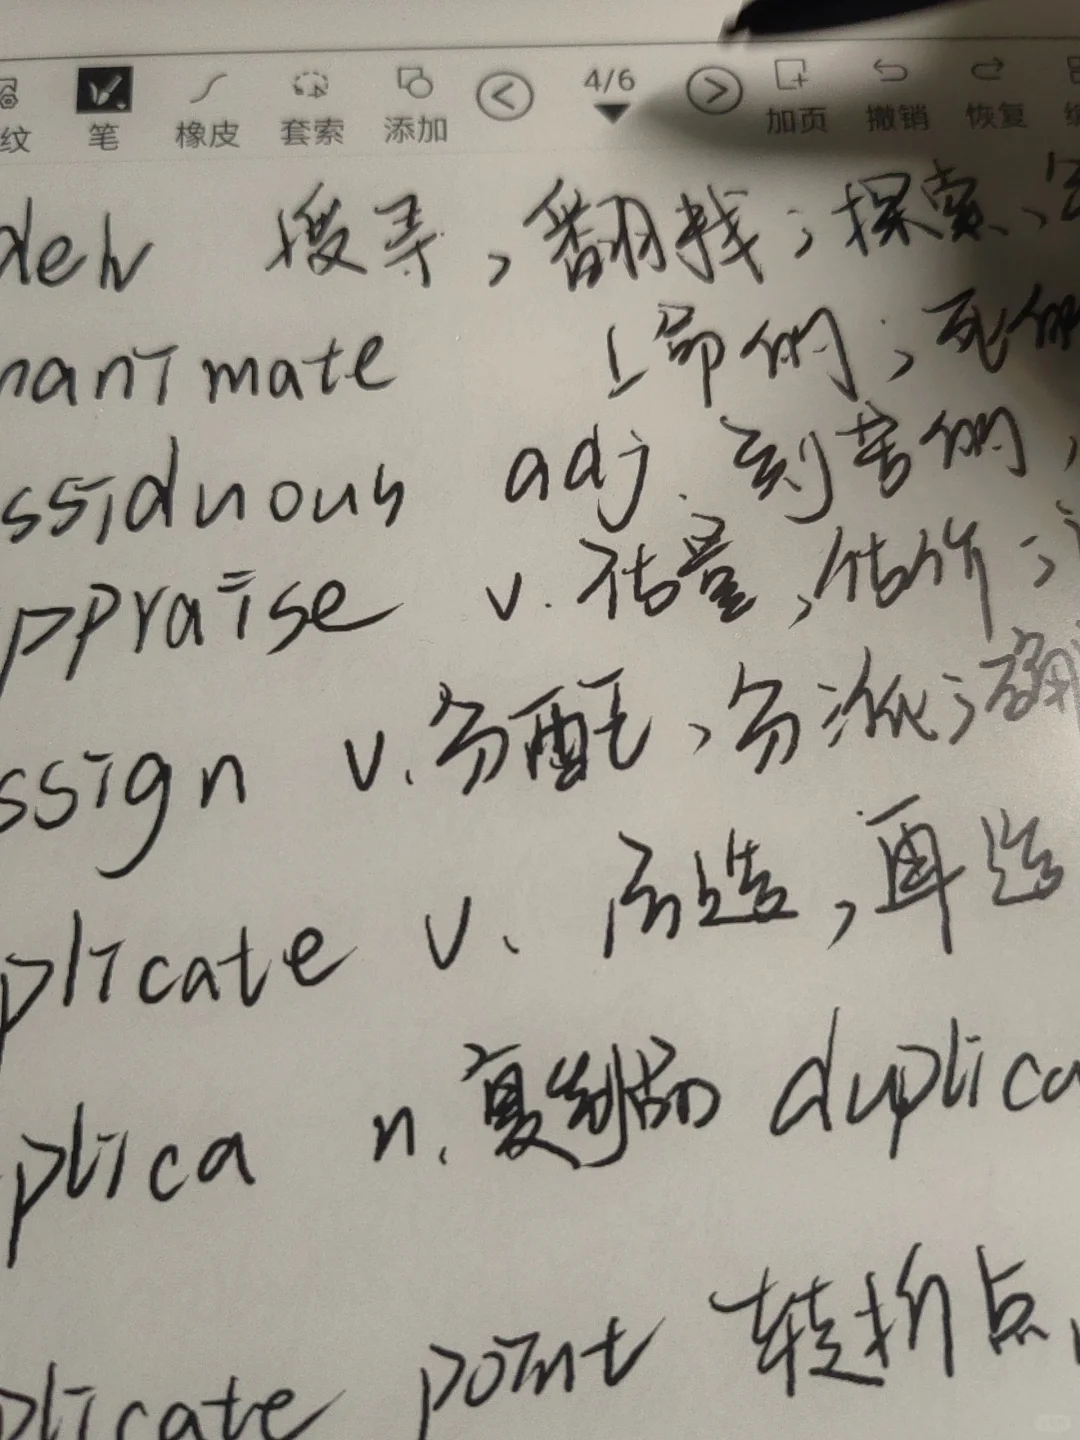 纹 笔 橡皮 套索 添加 4/6 加页 撤销 恢复
搜寻，翻找；探索、
的；死的
ssiduous adj. 刻苦的，
ppraise v. 估量，估价；
ssign v. 分配、分派；
plicate v. 再造
plica n. 复制品 duplica
plicate point 转折点、